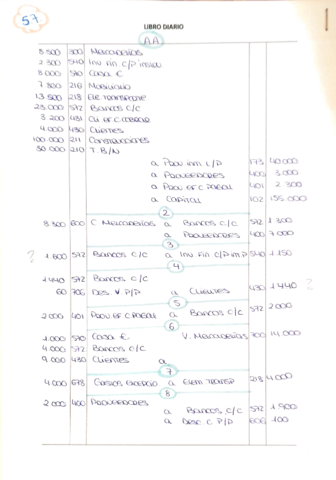 57
LIBRO DIARIO
AA
8 500 300 Mercaderías
2 300 540 Inv Fin C/P
8 000 570 Caja €
7 800 216 Mobiliario
13 500 218 Ele Transporte
23 000 572 Bancos C/C
3 200 431
4 000 430 Clientes
100 000 211 Construcciones
30 000 210 T. B/N
a Prov inm L/P 173 40 000
a Proveedores 400 3 000
a Prov ef C Pagar 401 2 300
a Capital 102 155 000
2
8 300 600 C Mercaderías a Bancos C/C 572 1 300
a Proveedores 400 7 000
3
? 1 800 572 Bancos C/C a Inv Fin C/P 540 1 150
4
1 440 572 Bancos C/C
60 706 Des V P/P a Clientes 430 1 440 ?
5
2 000 401 Prov ef C Pagar a Bancos C/C 572 2 000
6
1 000 570 Caja € V. Mercaderías 700 14 000
4 000 572 Bancos C/C
9 000 430 Clientes a
7
4 000 678 Gastos a Elem Transp 218 4 000
8
2 000 400 Proveedores
a Bancos C/C 572 1 900
a Desc C P/P 606 100